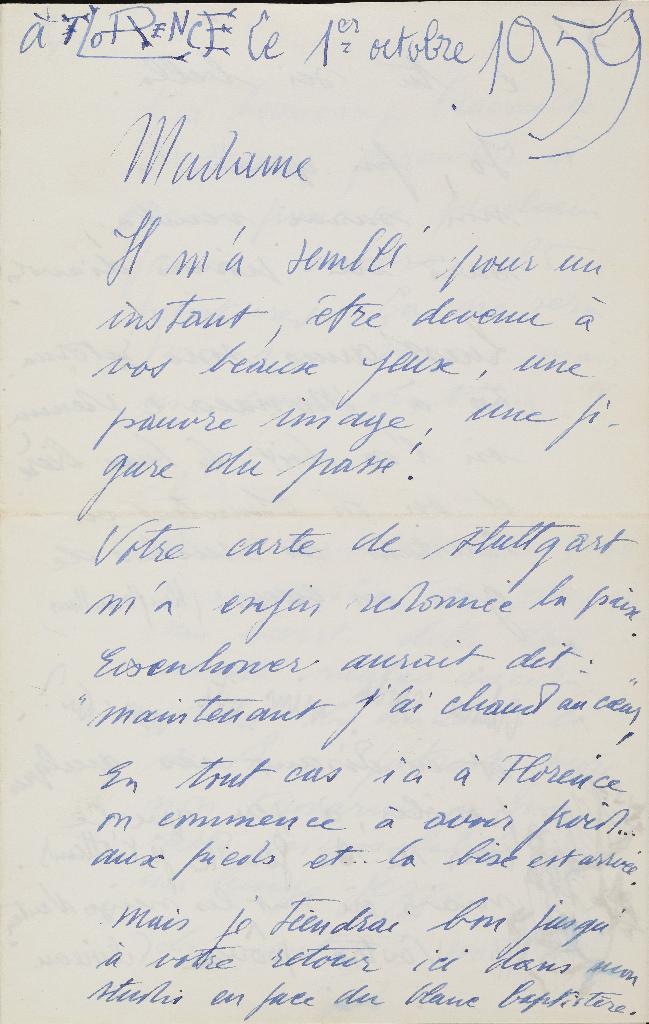 à FLORENCE le 1er octobre 1959
Madame
Il m'a semblé pour un
instant, être devenu à
vos beaux yeux, une
pauvre image, une fi-
gure du passé!
Votre carte de Stuttgart
m'a enfin redonnée la paix.
Eisenhower aurait dit:
"maintenant j'ai chaud au cœur"
En tout cas ici à Florence
on commence à avoir froid...
aux pieds et.. la bise est arrivée.
Mais je tiendrai bon jusqu'
à votre retour ici dans mon
studio en face du blanc baptistère.